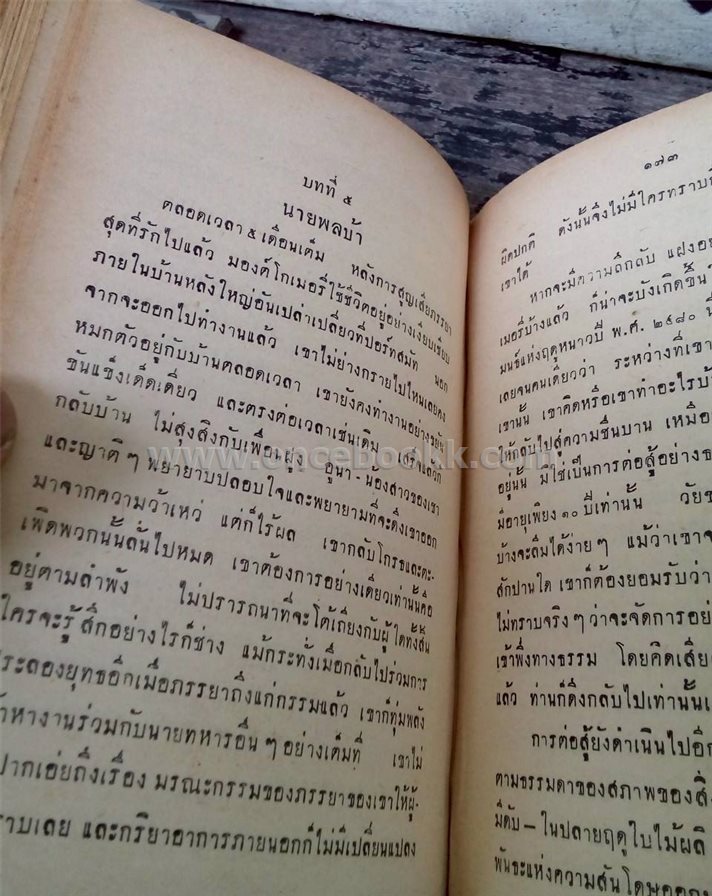 บทที่ ๕
นายพลบ้า
ตลอดเวลา ๕ เดือนเต็ม หลังการสูญเสียภรรยา
สุดที่รักไปแล้ว มองต์โกเมอรี่ใช้ชีวิตอยู่อย่างเงียบเชียบ
ภายในบ้านหลังใหญ่อันเปล่าเปลี่ยวที่ปอร์ทสมัท นอก
จากจะออกไปทำงานแล้ว เขาไม่ย่างกรายไปไหนเลยคง
หมกตัวอยู่กับบ้านตลอดเวลา เขายังคงทำงานอย่างขยัน
ขันแข็งเด็ดเดี่ยว และตรงต่อเวลาเช่นเดิม เสร็จแล้วก็
กลับบ้าน ไม่สุงสิงกับเพื่อนฝูง อูนา-น้องสาวของเขา
และญาติๆ พยายามปลอบใจและพยายามที่จะดึงเขาออก
มาจากความว้าเหว่ แต่ก็ไร้ผล เขากลับโกรธและตะ-
เพิดพวกนั้นลั่นไปหมด เขาต้องการอย่างเดียวเท่านั้นคือ
อยู่ตามลำพัง ไม่ปรารถนาที่จะโต้เถียงกับผู้ใดทั้งสิ้น
ใครจะรู้สึกอย่างไรก็ช่าง แม้กระทั่งเมื่อกลับไปร่วมการ
ประลองยุทธอีกเมื่อภรรยาถึงแก่กรรมแล้ว เขาก็ทุ่มพลัง
หางานร่วมกับนายทหารอื่นๆ อย่างเต็มที่ เขาไม่
ปากเอ่ยถึงเรื่อง มรณะกรรมของภรรยาของเขาให้ผู้-
ราบเลย และกริยาอาการภายนอกก็ไม่มีเปลี่ยนแปลง
๑๗๓
ผิดปกติ ดังนั้นจึงไม่มีใครทราบถึ
เขาได้
หากจะมีความลึกลับ แฝงอย
เมอรี่บ้างแล้ว ก็น่าจะบังเกิดขึ้น
มนธ์แห่งฤดูหนาวปี พ.ศ. ๒๔๘๐ นี้
เลยจนคนเดียวว่า ระหว่างที่เขา
เขานั้น เขาคิดหรือเขาทำอะไรบ้า
หักกลับไปสู่ความชื่นบาน เหมือ
อยู่นั้น มิใช่เป็นการต่อสู้อย่างธร
มีอายุเพียง ๑๐ ปีเท่านั้น วัยข
บ้างจะลืมได้ง่ายๆ แม้ว่าเขาจ
สักปานใด เขาก็ต้องยอมรับว่า
ไม่ทราบจริงๆ ว่าจะจัดการอย่
เข้าพึ่งทางธรรม โดยคิดเสีย
แล้ว ท่านก็ดึงกลับไปเท่านั้นเ
การต่อสู้ยังดำเนินไปอีก
ตามธรรมดาของสภาพของสิ่ง
มีดับ-ในปลายฤดูใบไม้ผลิ
พันธะแห่งความสันโดษออก
www.oncebookk.com